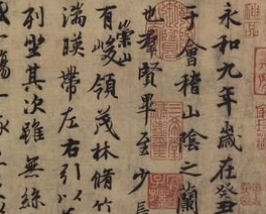 永和九年歲在癸丑
于會稽山陰之蘭
也羣賢畢至少長
有崇山峻領茂林脩竹
湍暎帶左右引以
列坐其次雖無絲
一觴一